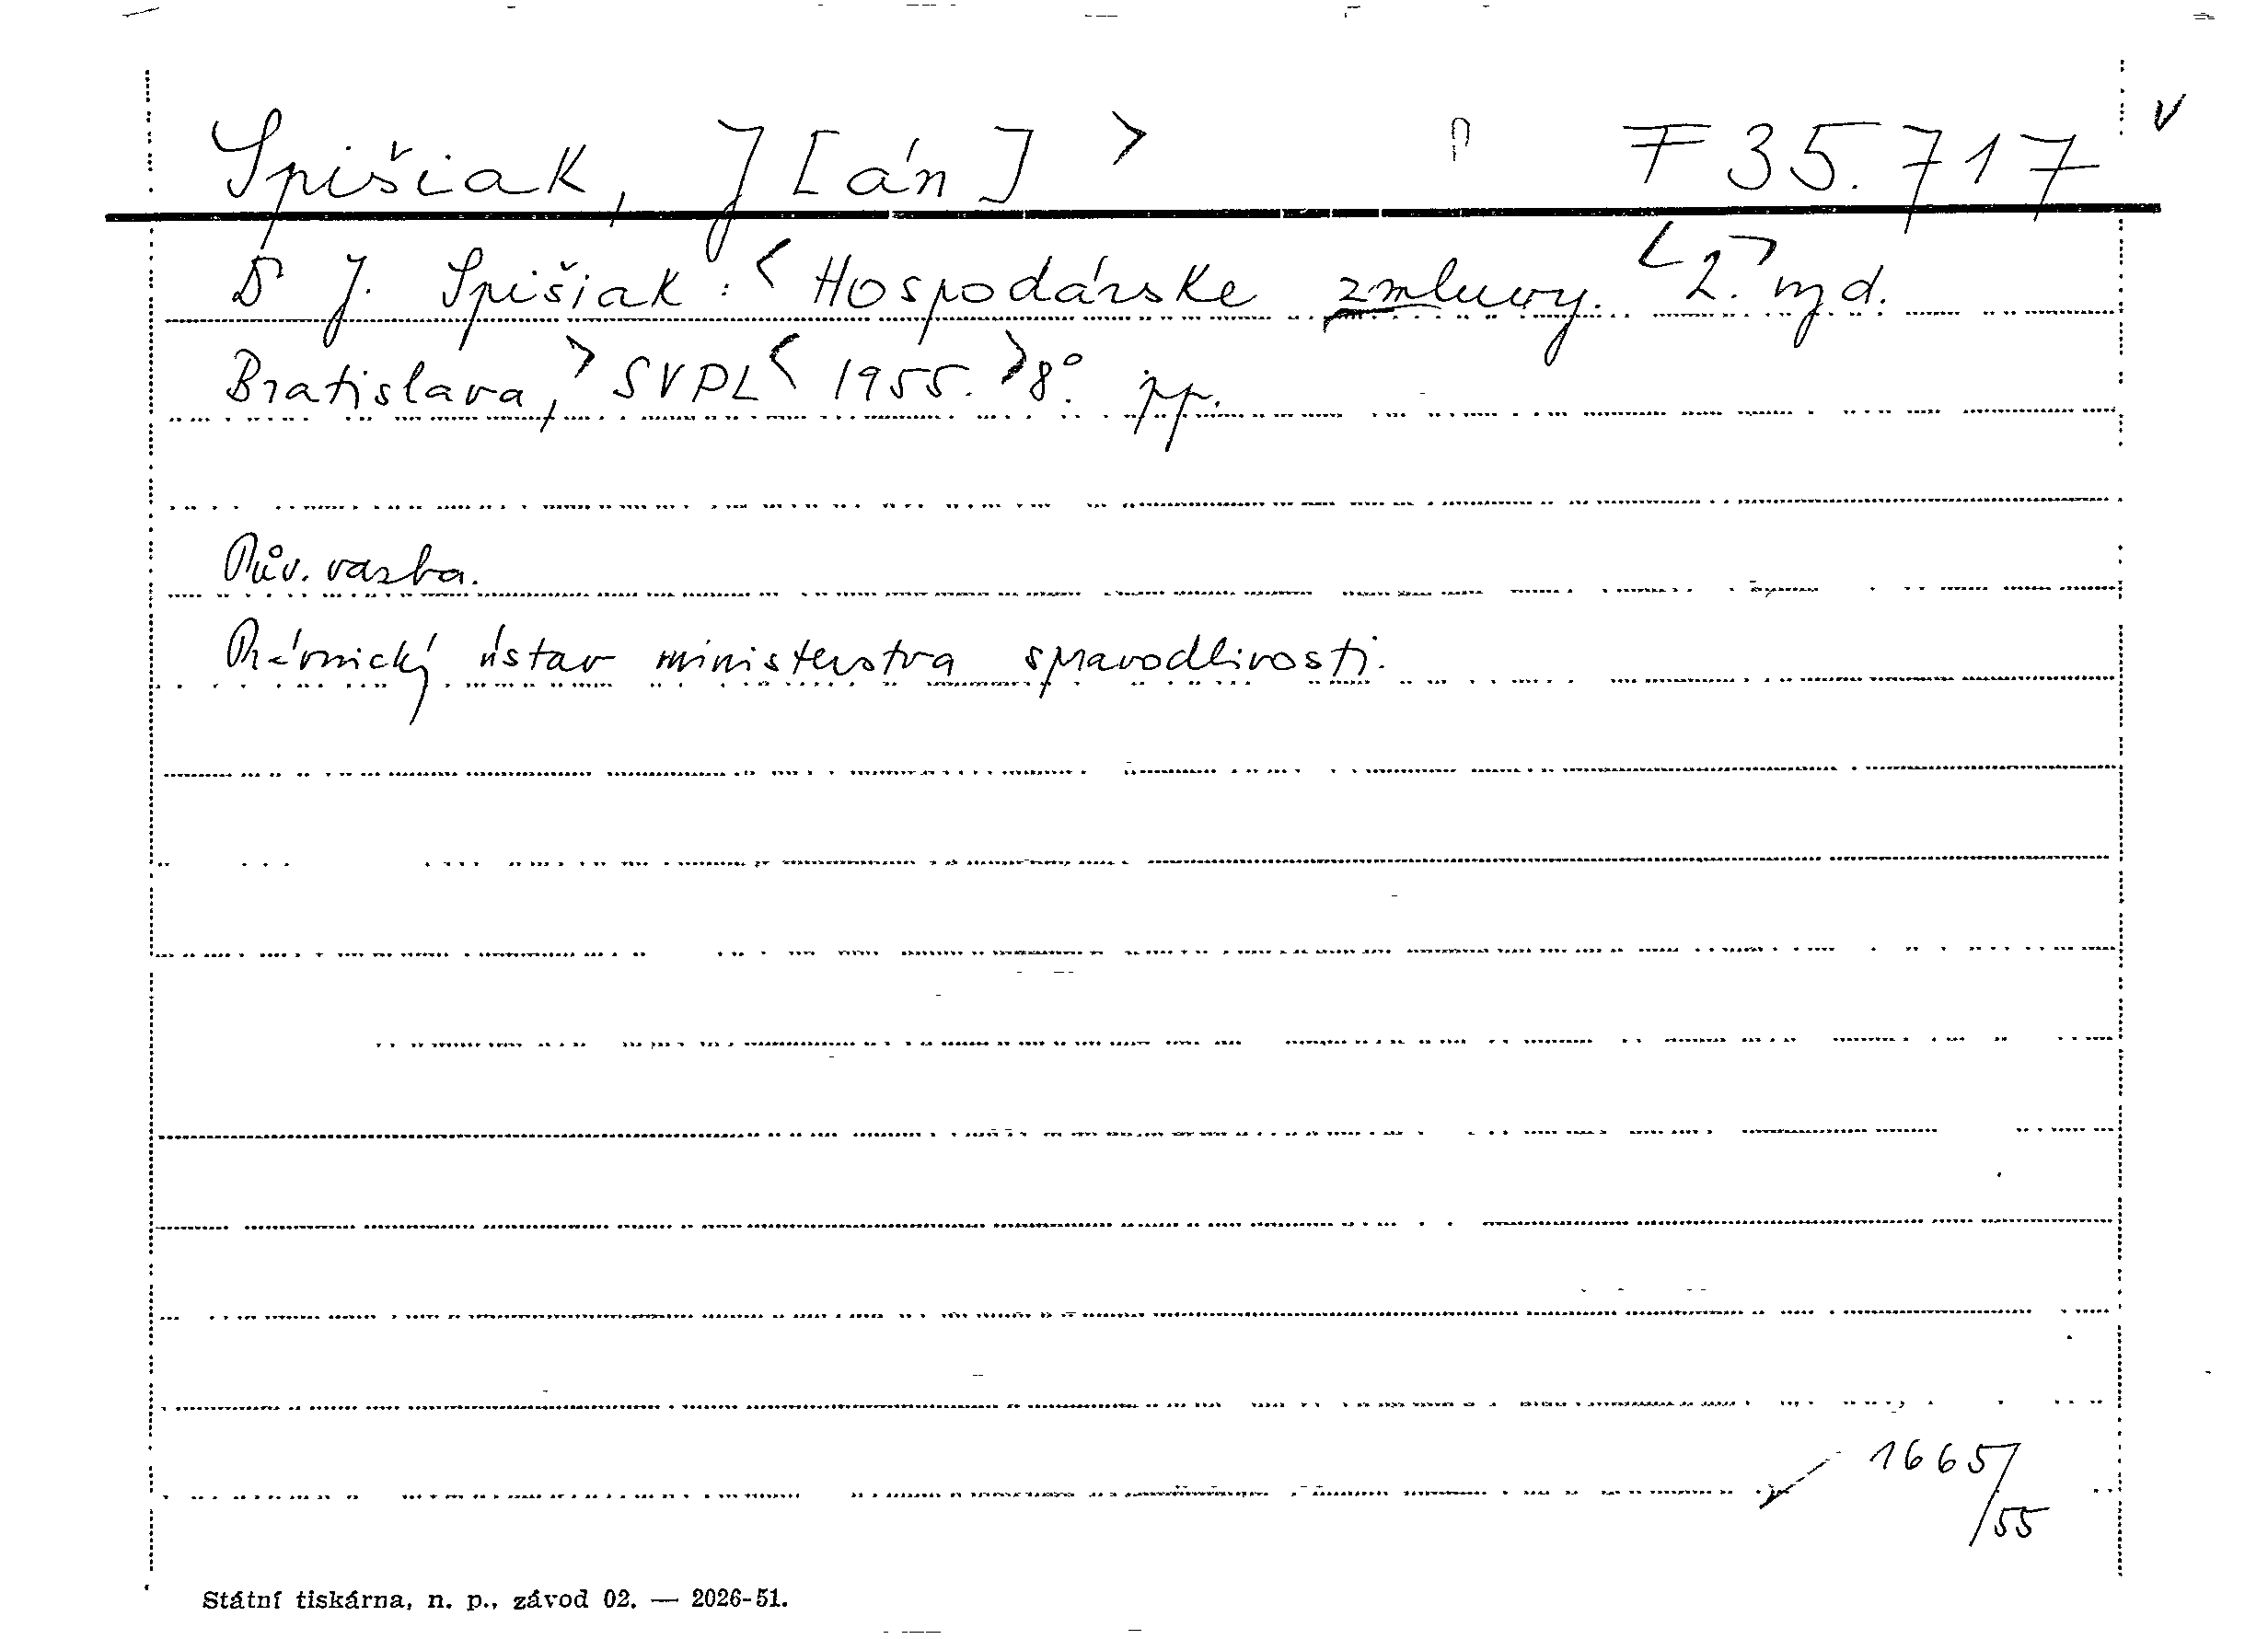 Spišiak, J[án] > F 35.717 v
Dr J. Spišiak: < Hospodárske zmluvy. < 2. > vyd.
Bratislava, > SVPL < 1955. > 8°. pp.
Pův. vazba.
Právnický ústav ministerstva spravodlivosti.
1665/55
Státní tiskárna, n. p., závod 02. — 2026-51.